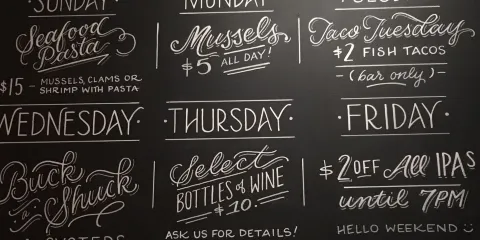 SUNDAY
Seafood
Pasta
$15 - MUSSELS, CLAMS OR
SHRIMP WITH PASTA
MONDAY
Mussels
$5 ALL DAY!
TUESDAY
Taco Tuesday
$2 FISH TACOS
- (bar only) -
WEDNESDAY
Buck
a
Shuck
OYSTERS
· THURSDAY ·
Select
BOTTLES of WINE
- $10. -
ASK US FOR DETAILS!
· FRIDAY ·
$2 OFF All IPAs
until 7PM
HELLO WEEKEND :)